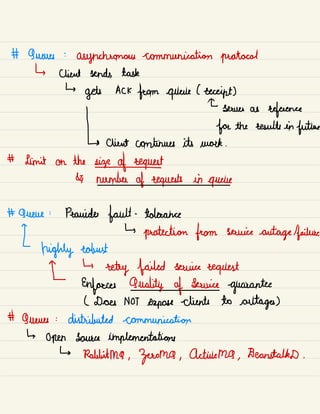 # Queues : asynchronous communication protocol
↳ Client sends task
↳ gets ACK from queue (receipt)
↳ serves as reference
for the results in future
↳ Client continues its work.
# Limit on the size of request
↳ number of requests in queue
# Queue : Provides fault-tolerance
↳ protection from service outage/failure
highly robust
↳ retry failed service request
Enforces Quality of Service guarantee
(Does NOT expose clients to outages)
# Queues : distributed communication
↳ Open source implementations
↳ RabbitMQ, ZeroMQ, ActiveMQ, BeanstalkD.